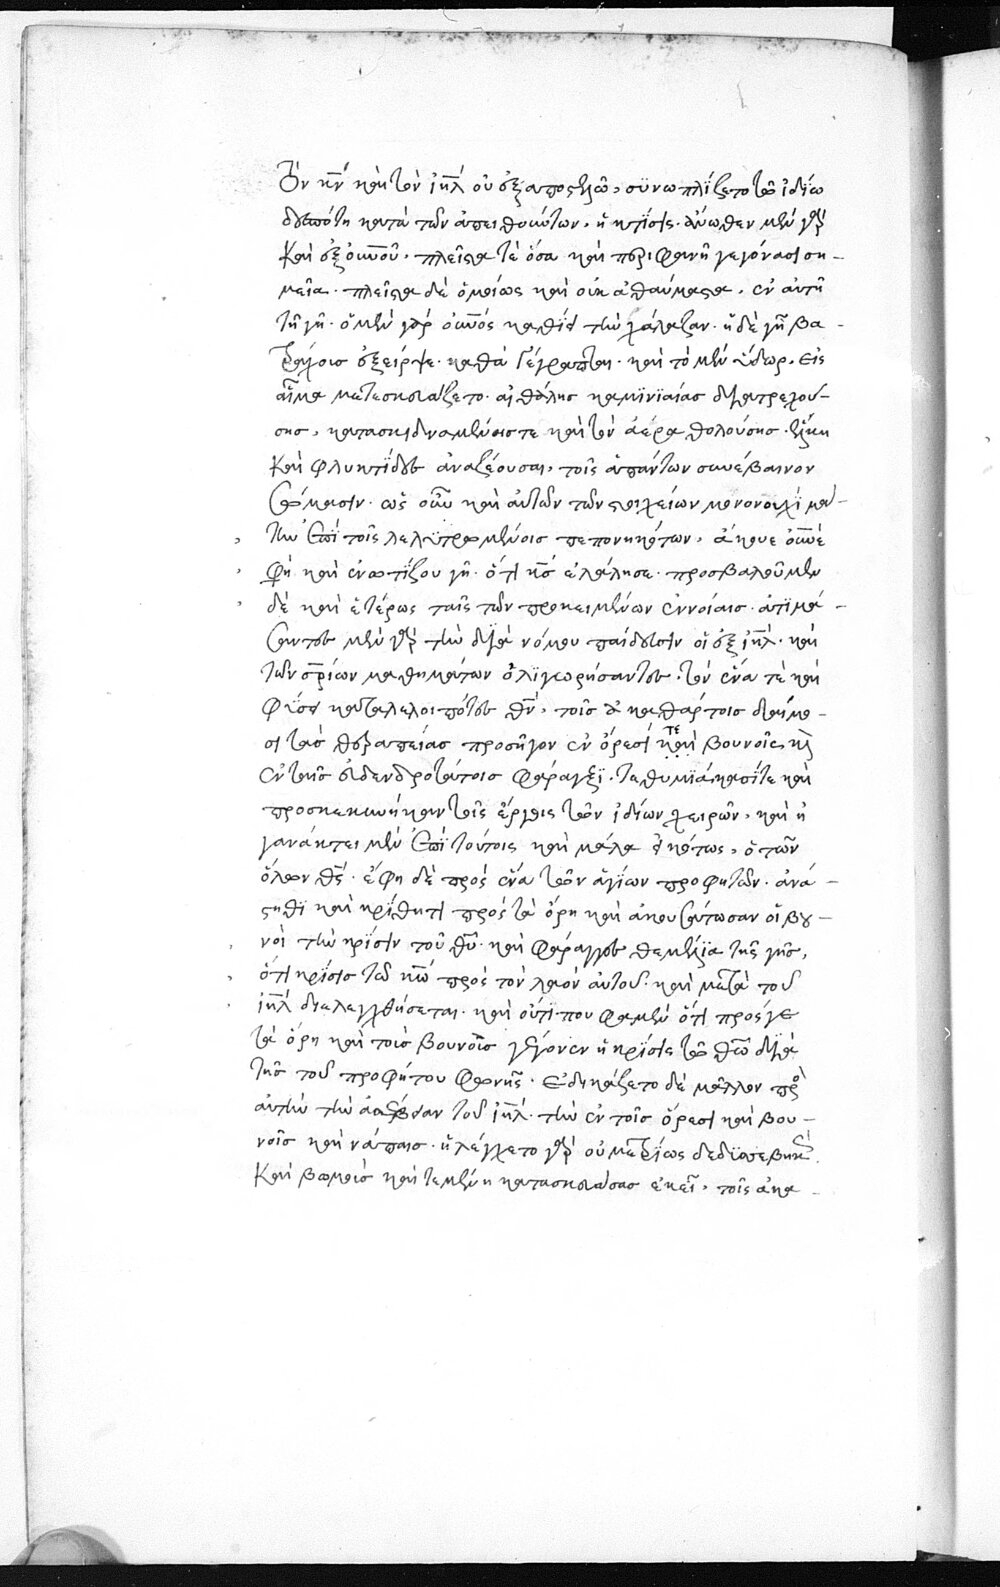 τὸν κν̅ καὶ τὸν ιη̅λ οὐ ἐξαποστελῶ, συνωπλίζετο τῶ ἰδίω
δεσπότη κατὰ τῶν ἀπειθούντων, ἡ κτίσις. ἄνωθεν μὲν γὰρ
καὶ ἐξ οὐ̅νοῦ, πλεῖστα τὲ ὅσα καὶ περιφανῆ γεγόνασι ση-
μεῖα. πλεῖστα δὲ ὁμοίως καὶ οὐκ ἀθαύμαστα, ἐν αὐτῆ
τῆ γῆ. ὁ μὲν γὰρ οὐ̅νὸς καθίει τὴν χάλαζαν. ἡ δὲ γῆ βα-
τράχοις ἐξεῖρψε. καθὰ γέγραπται. καὶ τὸ μὲν ὕδωρ, εἰς
αἷμα μετεσκευάζετο. αἰθάλης καμινιαίας διατρεχού-
σης, κατασκιδναμένης τε καὶ τὸν ἀέρα θολούσης. ἕλκη
καὶ φλυκτίδες ἀναζέουσαι, τοῖς ἁπάντων συνέβαινον
σώμασιν. ὡς οὖν καὶ αὐτῶν τῶν στοιχείων μονονουχὶ μά-
την ἐπὶ τοῖς λελυτρωμένοις πεπονηκότων, ἄκουε οὐ̅νέ
φη καὶ ἐνωτίζου γῆ. ὅτι κς̅ ἐλάλησε. προσβαλοῦμεν
δὲ καὶ ἑτέρως ταῖς τῶν προκειμένων ἐννοίαις. ἀτιμά-
σαντες μὲν γὰρ τὴν διὰ νόμου παίδευσιν οἱ ἐξ ιη̅λ. καὶ
τῶν σ̅ρίων μαθημάτων ὀλιγωρήσαντες. τὸν ἕνα τὲ καὶ
φύσει καταλελοιπότες θν̅, τοῖς ἀκαθάρτοις δαίμο-
σι τὰς θεραπείας προσῆγον ἐν ὄρεσί τε καὶ βουνοῖς κὶ
ἐν ταῖς εὐδενδροτάτοις φάραγξι. τεθυμιάκασί τε καὶ
προσκεκυνήκασι τοῖς ἔργοις τῶν ἰδίων χειρῶν, καὶ ἠ
γανάκτει μὲν ἐπὶ τούτοις καὶ μάλα εἰκότως, ὁ τῶν
ὅλων θς̅. ἔφη δὲ πρὸς ἕνα τῶν ἁγίων προφητῶν. ἀνά-
στηθι καὶ κρίθητι πρὸς τὰ ὄρη καὶ ἀκουσάτωσαν οἱ βου-
νοὶ τὴν κρίσιν τοῦ θυ̅. καὶ φάραγγες θεμέλια τῆς γῆς,
ὅτι κρίσις τῶ κω̅ πρὸς τὸν λαὸν αὐτοῦ. καὶ μετὰ τοῦ
ιη̅λ διελεγχθήσεται. καὶ οὔτι που φαμὲν ὅτι πρός γε
τὰ ὄρη καὶ τοὺς βουνοὺς γέγονεν ἡ κρίσις τῶ θω̅ διὰ
τῆς τοῦ προφήτου φωνῆς. ἐδικάζετο δὲ μᾶλλον πρὸς
αὐτὴν τὴν ἀσέβειαν τοῦ ιη̅λ. τὴν ἐν τοῖς ὄρεσι καὶ βου-
νοῖς καὶ νάπαις. ἠλέγχετο γὰρ οὐ μετρίως δεδυσσεβηκὼς
καὶ βωμοὺς καὶ τεμένη κατασκευάσας ἐκεῖ, τοῖς ἀκα-